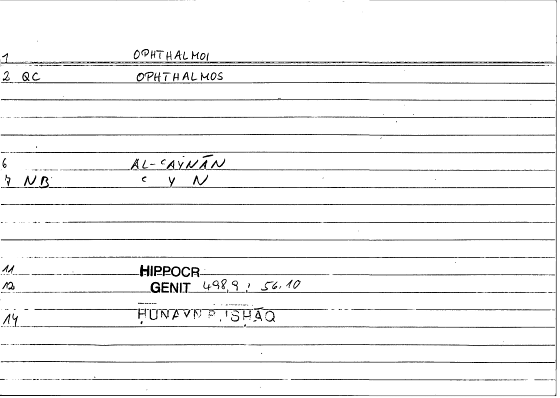 1 OPHTHALMOI
2 QC OPHTHALMOS
6 AL-ʿAYNĀN
7 NB ʿ Y N
11 HIPPOCR
12 GENIT 498,9 ; 56.10
14 ḤUNAYN B. ISḤĀQ